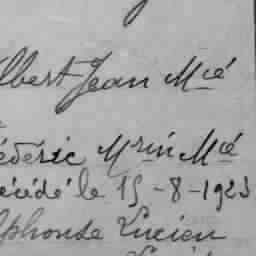 Albert Jean Mié
Frédéric Marin Mié
décédé le 15-8-1923
Alphonse Lucien